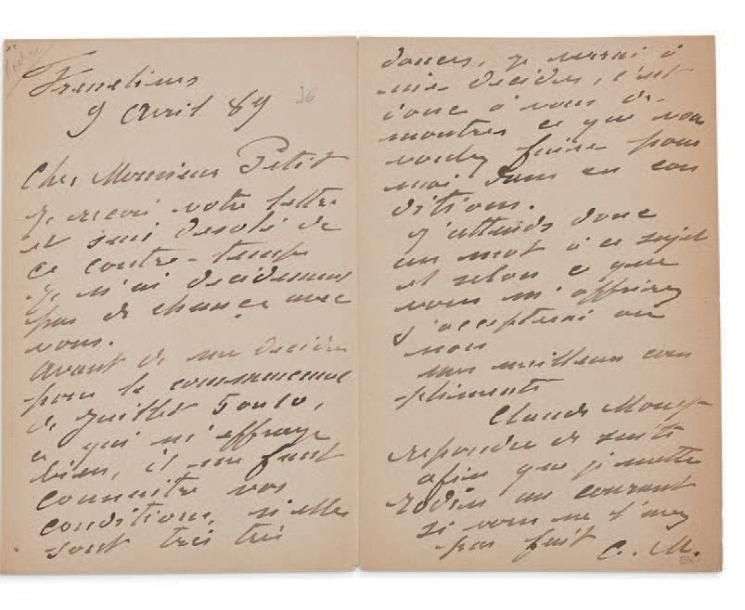 Fresselines
9 Avril 89
36
Cher Monsieur Petit
Je reçois votre lettre
et suis désolé de
ce contre-temps
je n'ai décidément
pas de chance avec
vous.
Avant de me décider
pour le commencement
de Juillet
ce qui m'effraye
bien, il me faut
connaître vos
conditions, si elles
sont très très
douces, je verrai à
me décider, c'est
donc à vous de
montrer ce que vous
voulez faire pour
moi dans ces con
ditions.
J'attends donc
un mot à ce sujet
et selon ce que
vous m'offrirez
j'accepterai ou
non
mes meilleurs com
pliments
Claude Monet
répondre de suite
afin que je mette
Rodin au courant
si vous ne l'avez
pas fait C. M.